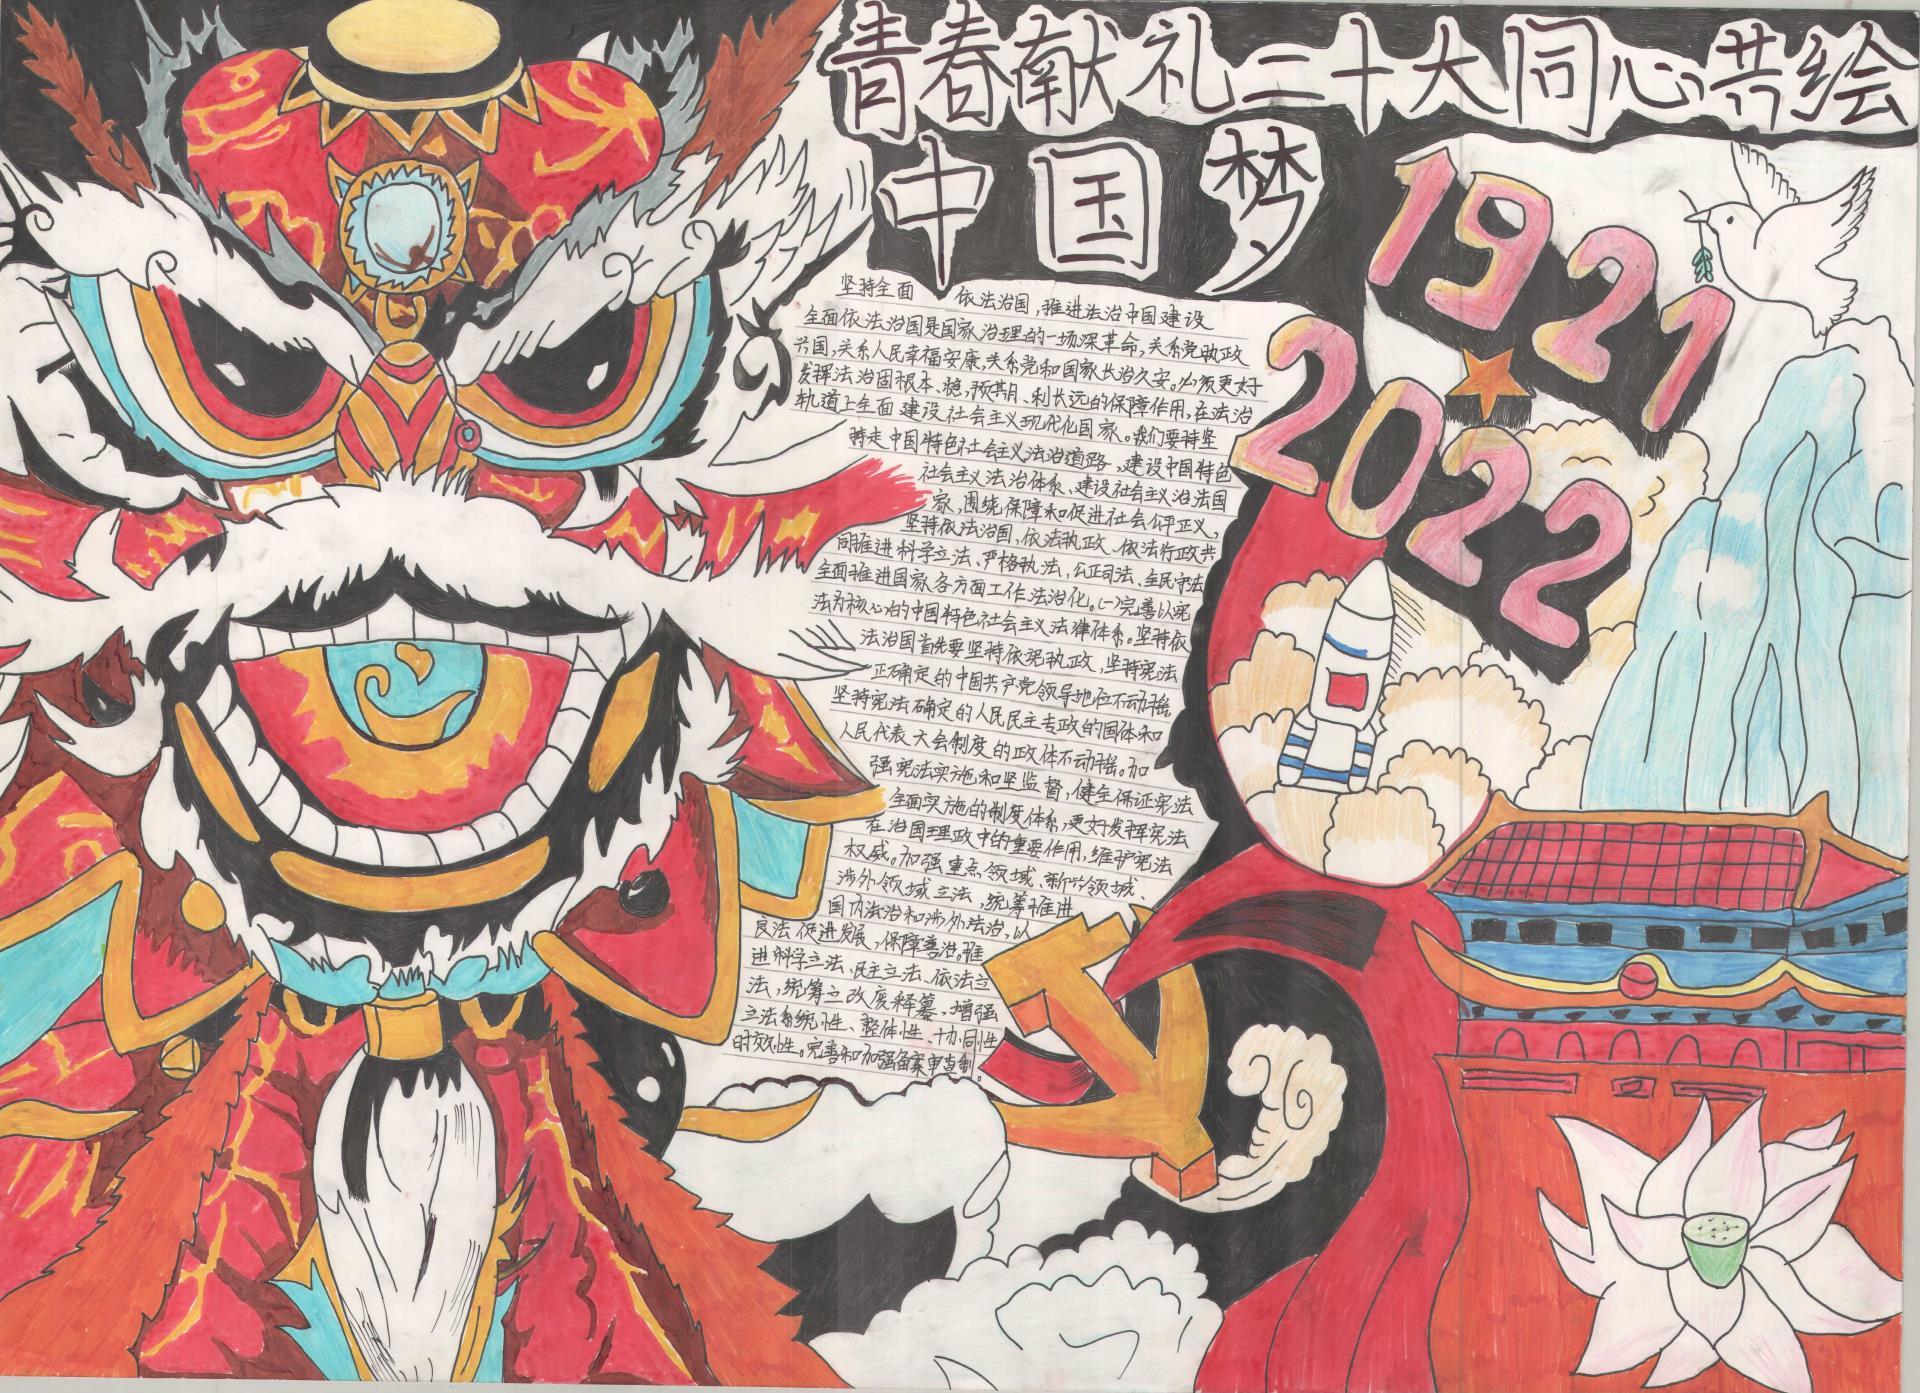 青春献礼二十大同心共绘
中国梦
1921
2022
坚持全面 依法治国，推进法治中国建设
全面依法治国是国家治理的一场深革命，关系党执政
兴国，关系人民幸福安康，关系党和国家长治久安。必须更好
发挥法治固根本、稳预期、利长远的保障作用，在法治
轨道上全面建设社会主义现代化国家。我们要持坚
持走中国特色社会主义法治道路，建设中国特色
社会主义法治体系、建设社会主义治法国
家，围绕保障和促进社会公平正义，
坚持依法治国，依法执政、依法行政共
同推进科学立法、严格执法，公正司法、全民守法
全面推进国家各方面工作法治化。(一)完善以宪
法为核心的中国特色社会主义法律体系。坚持依
法治国首先要坚持依宪执政，坚持宪法
正确定的中国共产党领导地位不动摇
坚持宪法确定的人民民主专政的国体和
人民代表大会制度的政体不动摇。加
强宪法实施和坚监督，健全保证宪法
全面实施的制度体系，更好发挥宪法
在治国理政中的重要作用，维护宪法
权威。加强重点领域、新兴领域、
涉外领域立法，统筹推进
国内法治和涉外法治，以
良法促进发展，保障善治。推
进科学立法、民主立法、依法立
法，统筹立改废释纂，增强
立法系统性、整体性、协同性
时效性。完善和加强备案审查制。